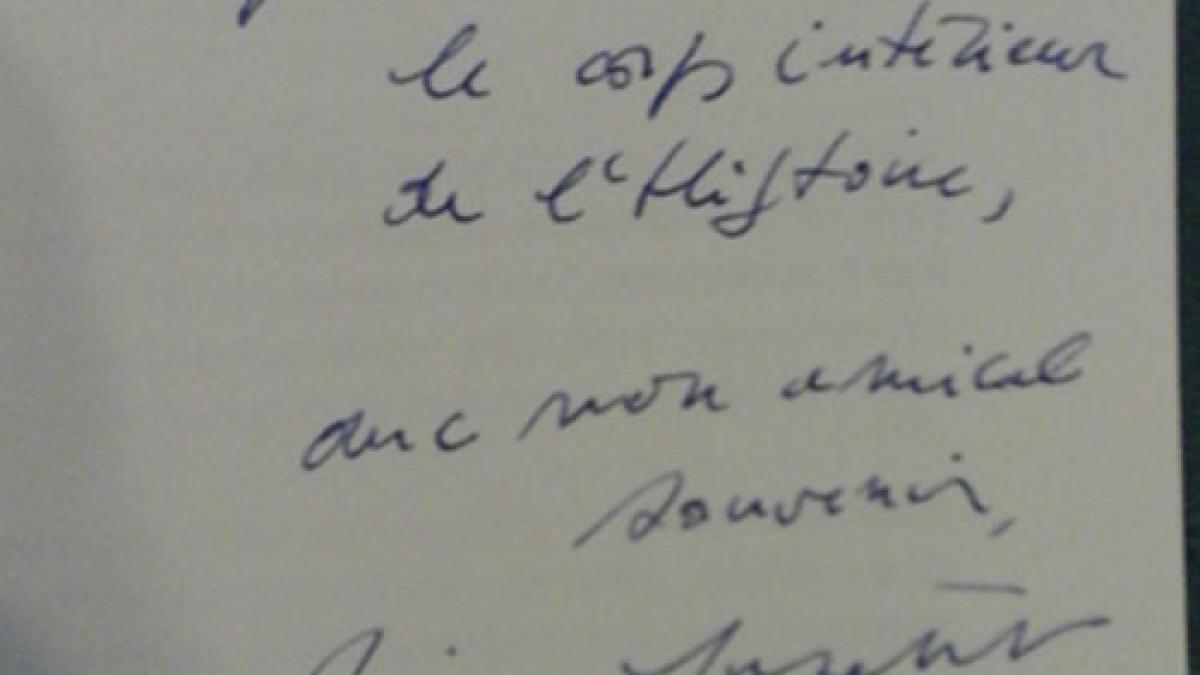 le corps intérieur
de l'Histoire,
avec mon amical
souvenir,